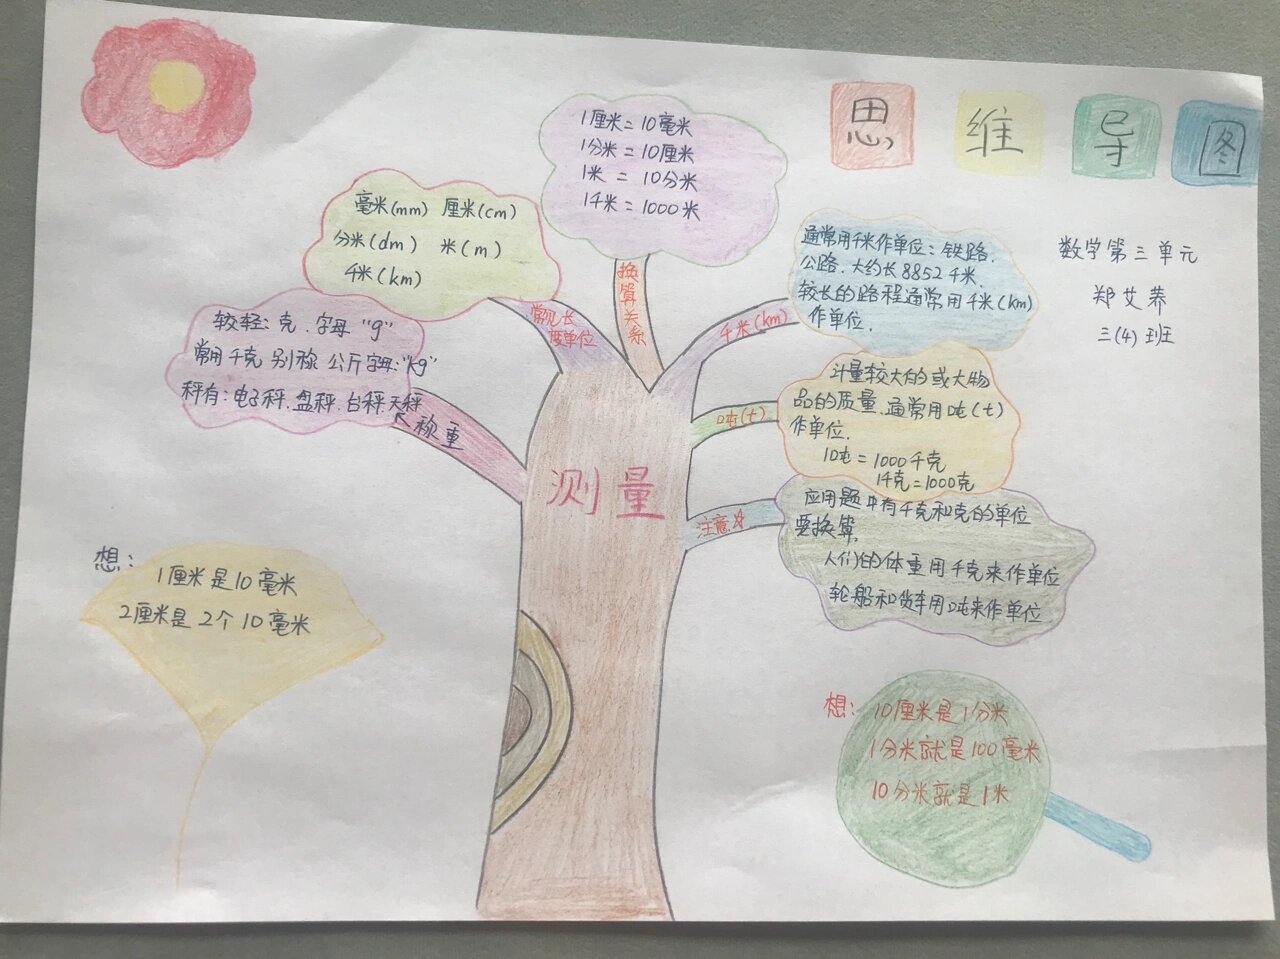 思维导图
数学第三单元
郑艾荞
三(4)班
测量
称重
较轻:克.字母"g"
常用千克 别称 公斤字母:"kg"
秤有:电子秤.盘秤.台秤天秤
常见长
度单位
毫米(mm) 厘米(cm)
分米(dm) 米(m)
千米(km)
换算关系
1厘米=10毫米
1分米=10厘米
1米=10分米
1千米=1000米
千米(km)
通常用千米作单位:铁路.
公路.大约长8852千米.
较长的路程通常用千米(km)
作单位.
吨(t)
计量较大的或大物
品的质量.通常用吨(t)
作单位.
10吨=1000千克
1千克=1000克
注意☆
应用题中有千克和克的单位
要换算.
人们的体重用千克来作单位
轮船和货车用吨来作单位
想:
1厘米是10毫米
2厘米是2个10毫米
想:
10厘米是1分米
1分米就是100毫米
10分米就是1米